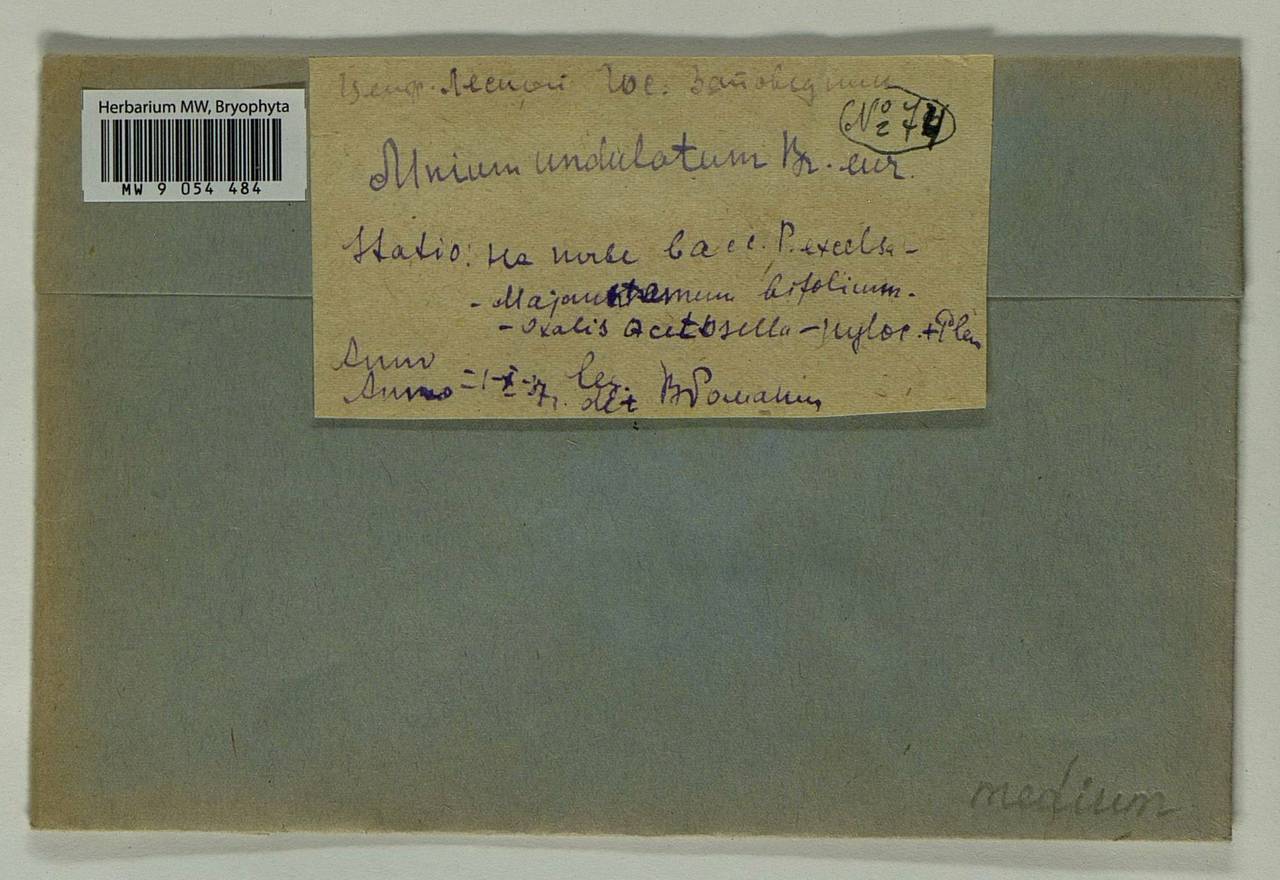 Herbarium MW, Bryophyta
MW 9 054 484
Центр. Лесной Гос. Заповедник
№ 274
Mnium undulatum Br. eur.
Statio: на почве в асс. P. excelsa-
- Majanthemum bifolium.
- Oxalis acetosella - Hyloc. + Pleu
Anno
Anno = 1-X-37. leg. det ВРоманин
medium